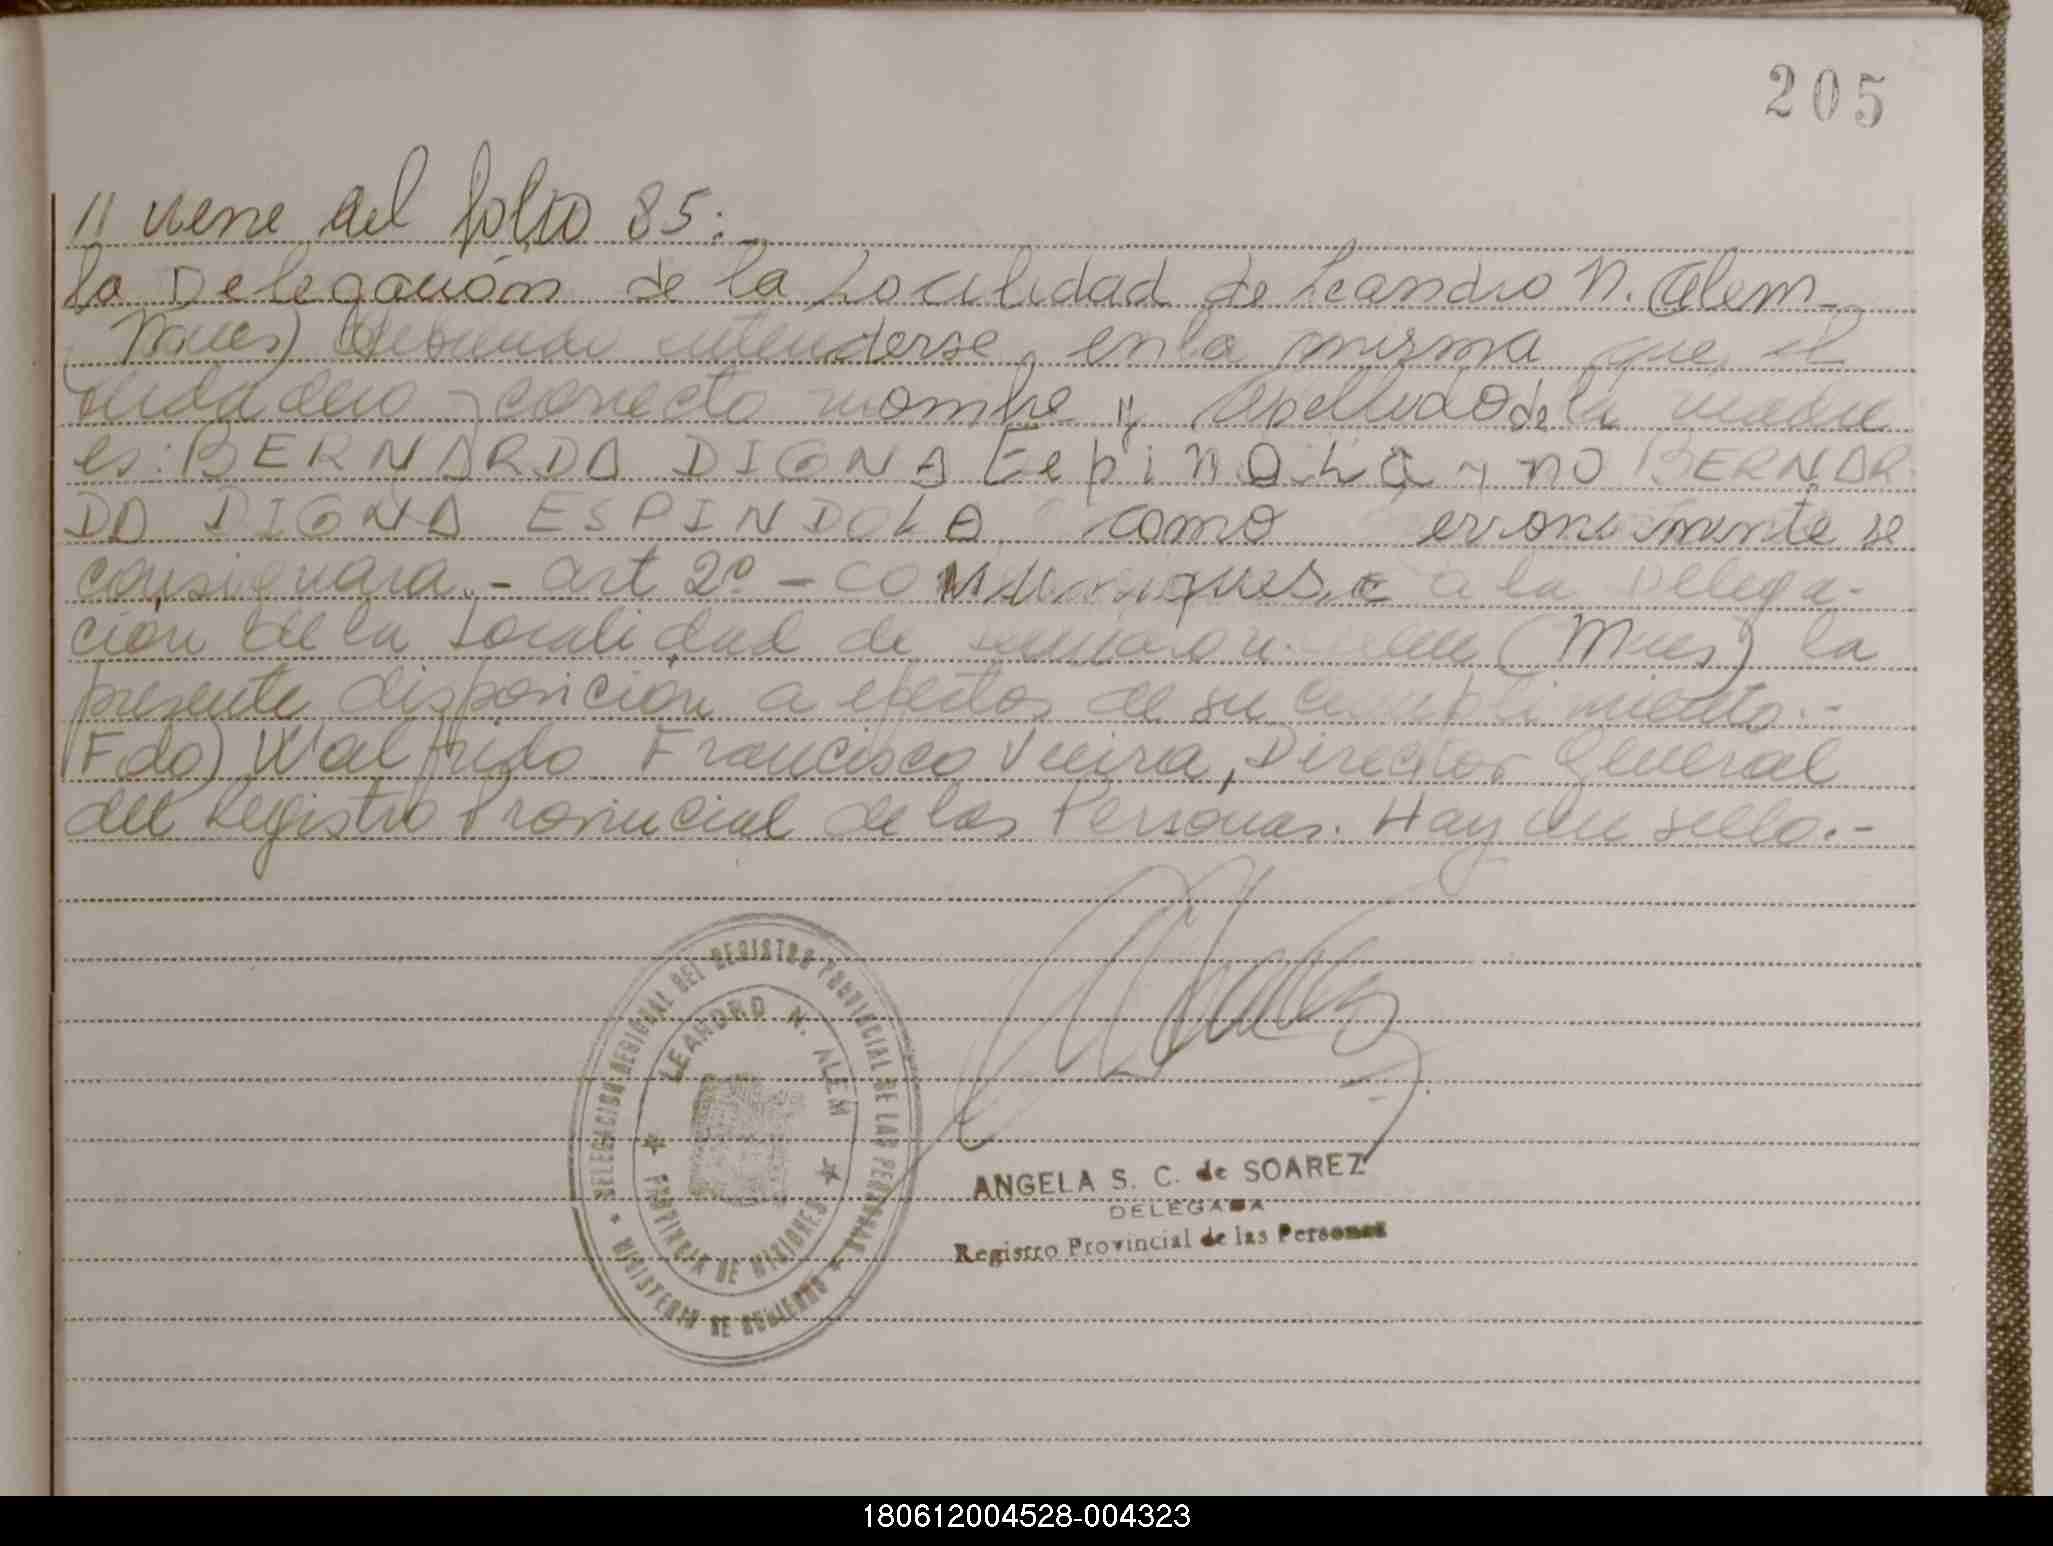 205
// viene del folio 85:
la Delegación de la Localidad de Leandro N. Alem-
(Mnes) debiendo entenderse, en la misma que, el
verdadero y correcto nombre y Apellido de la madre
es: BERNARDA DIGNA Espinola y no BERNAR-
DA DIGNA ESPINDOLA como erroneamente se
consignara.- art 2º - comuniquese a la Delega-
ción de la Localidad de Leandro N. Alem (Mnes) la
presente disposición a efectos de su cumplimiento.-
(Fdo) Walfrido Francisco Vieira, Director General
del Registro Provincial de las Personas. Hay un sello.-
DELEGACION REGIONAL DEL REGISTRO PROVINCIAL DE LAS PERSONAS
LEANDRO N. ALEM
PROVINCIA DE MISIONES
MINISTERIO DE GOBIERNO
ANGELA S. C. de SOAREZ
DELEGADA
Registro Provincial de las Personas
180612004528-004323